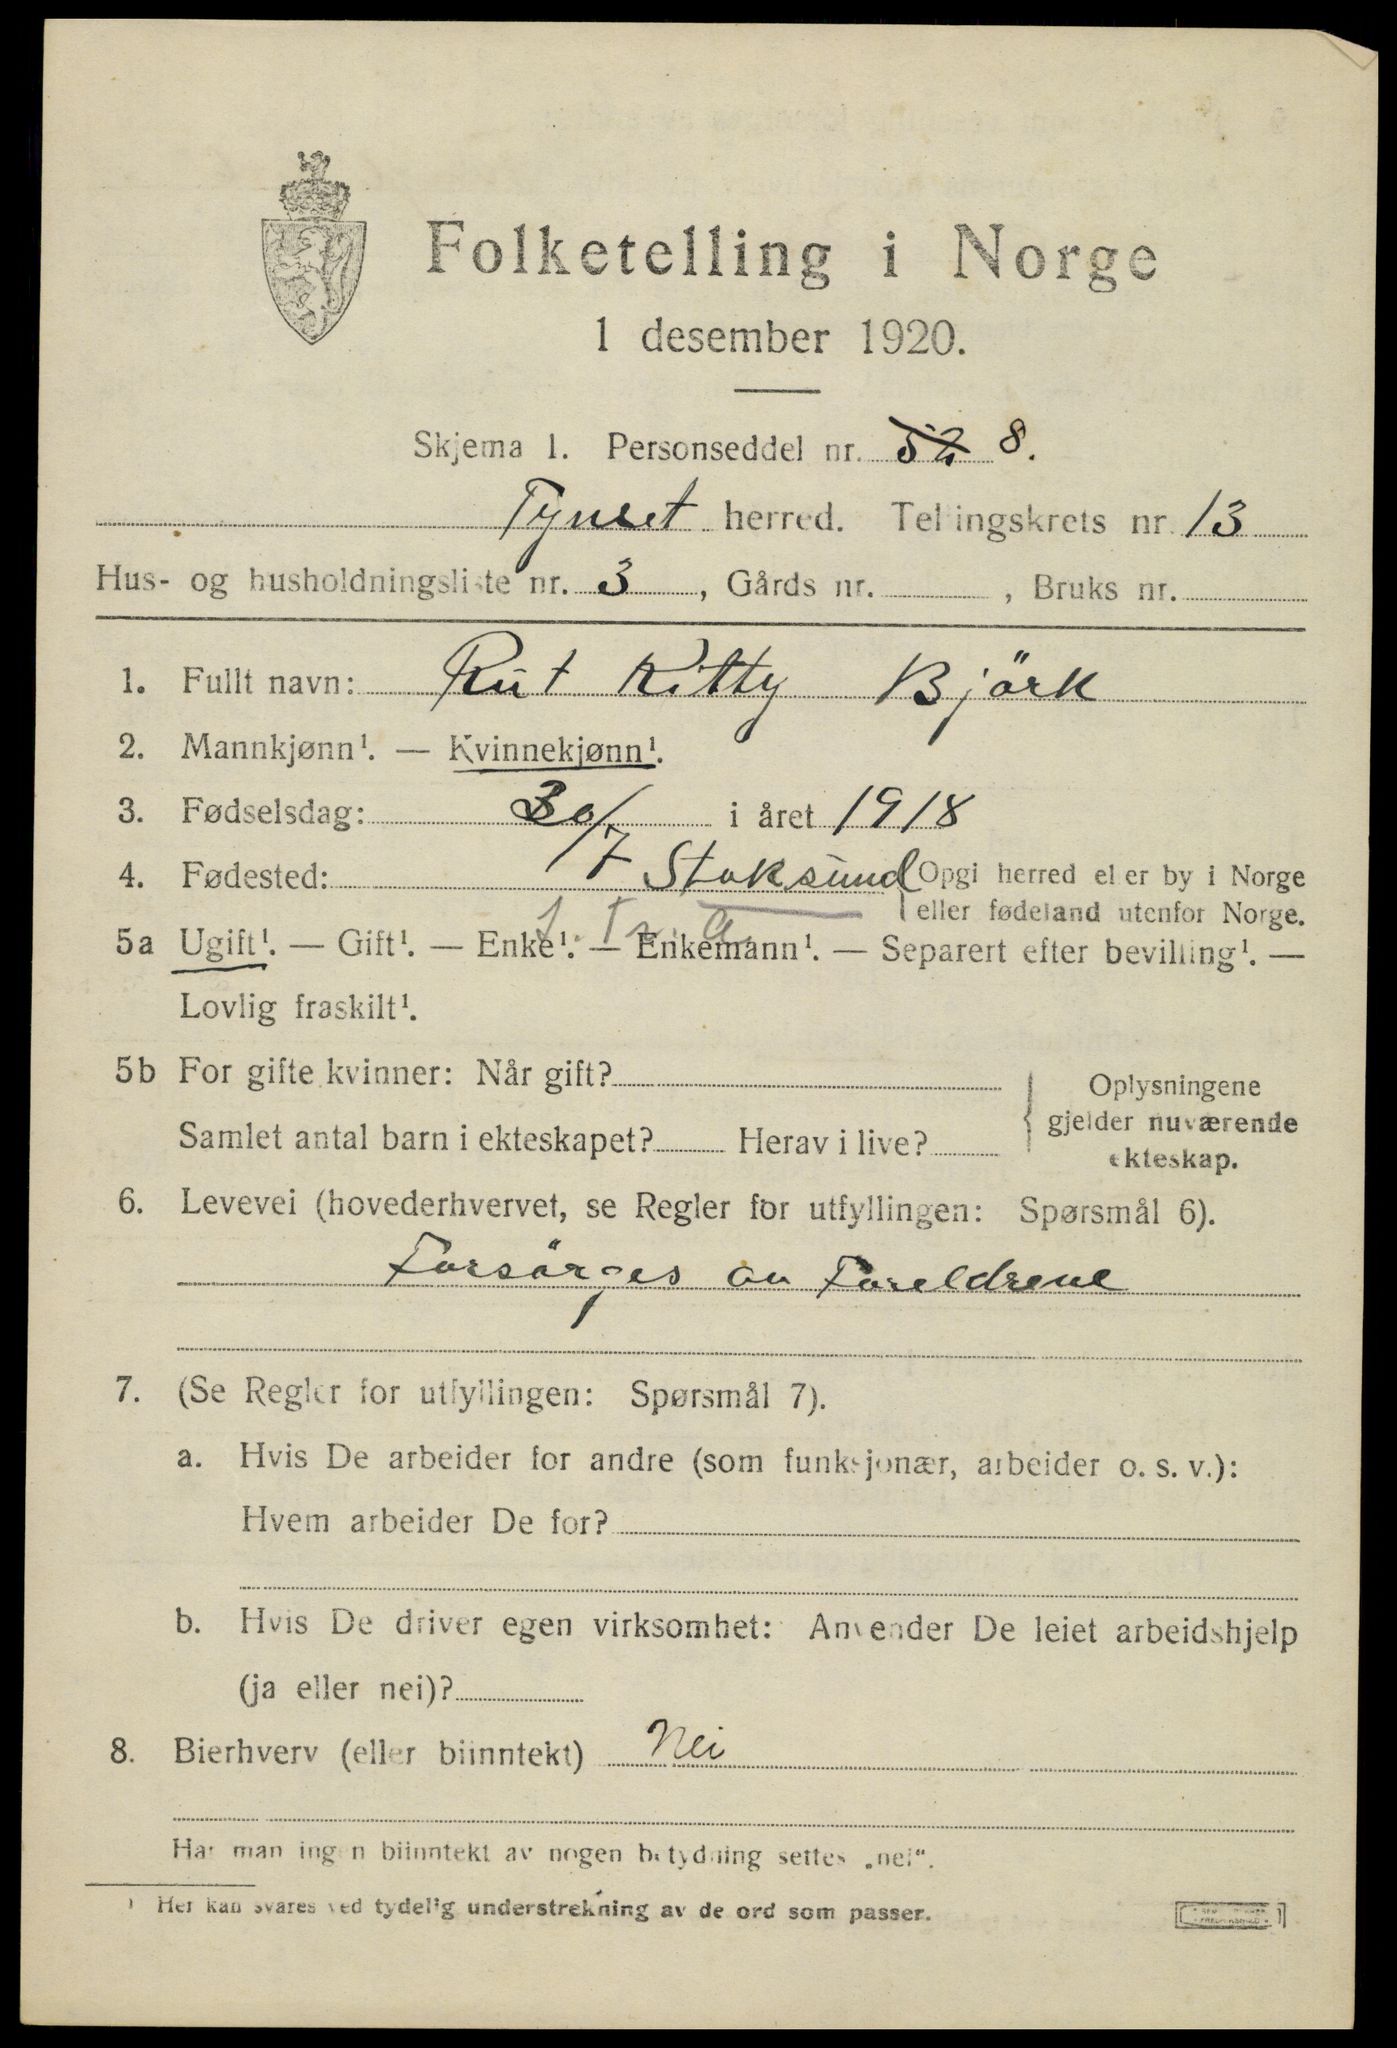 Folketelling i Norge
1 desember 1920.
Skjema 1. Personseddel nr. 52 8.
Tynset herred. Tellingskrets nr. 13
Hus- og husholdningsliste nr. 3, Gårds nr. , Bruks nr.
1. Fullt navn: Rut Kitty Björk
2. Mannkjønn¹. — Kvinnekjønn¹.
3. Fødselsdag: 30/7 i året 1918
4. Fødested: Stoksund { Opgi herred eller by i Norge
eller fødeland utenfor Norge.
5a Ugift¹. — Gift¹. — Enke¹. — Enkemann¹. — Separert efter bevilling¹. —
Lovlig fraskilt¹.
5b For gifte kvinner: Når gift? { Oplysningene
gjelder nuværende
Samlet antal barn i ekteskapet? Herav i live?
ekteskap.
6. Levevei (hovederhvervet, se Regler for utfyllingen: Spørsmål 6).
Forsörges av Foreldrene
7. (Se Regler for utfyllingen: Spørsmål 7).
a. Hvis De arbeider for andre (som funksjonær, arbeider o. s. v.):
Hvem arbeider De for?
b. Hvis De driver egen virksomhet: Anvender De leiet arbeidshjelp
(ja eller nei)?
8. Bierhverv (eller biinntekt) Nei
Har man ingen biinntekt av nogen betydning settes „nei“.
¹ Her kan svares ved tydelig understrekning av de ord som passer.